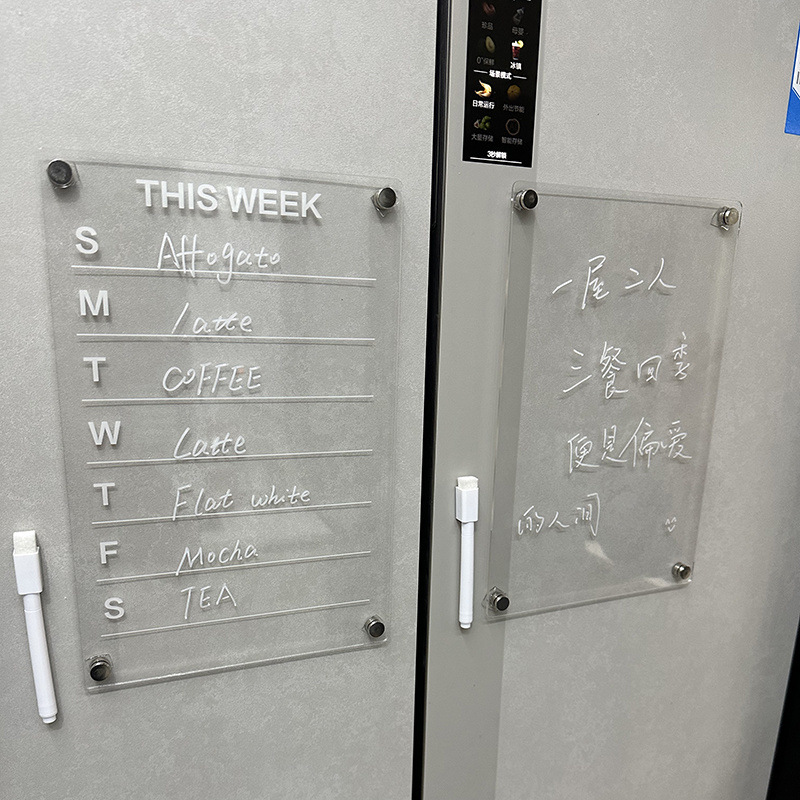 珍品 母婴
0°保鲜 冰镇
场景模式
日常运行 外出节能
大量存储 智能存储
3秒解锁
THIS WEEK
S Affogato
M latte
T COFFEE
W Latte
T Flat white
F Mocha
S TEA
一屋二人
三餐四季
便是偏爱
的人间